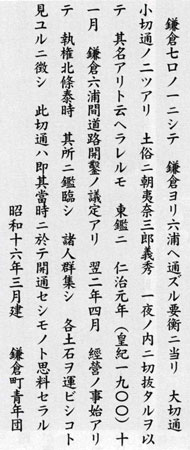 鎌倉七口ノ一ニシテ 鎌倉ヨリ六浦ヘ通ズル要衝ニ当リ 大切通
小切通ノ二ツアリ 土俗ニ朝夷奈三郎義秀 一夜ノ内ニ切抜タルヲ以
テ 其名アリト云ヘラレルモ 東鑑ニ 仁治元年(皇紀一九〇〇)十
一月 鎌倉六浦間道路開鑿ノ議定アリ 翌二年四月 經營ノ事始アリ
テ 執権北條泰時 其所ニ監臨シ 諸人群集シ 各土石ヲ運ビシコト
見ユルニ徴シ 此切通ハ即其當時ニ於テ開通セシモノト思料セラル
昭和十六年三月建 鎌倉町青年団